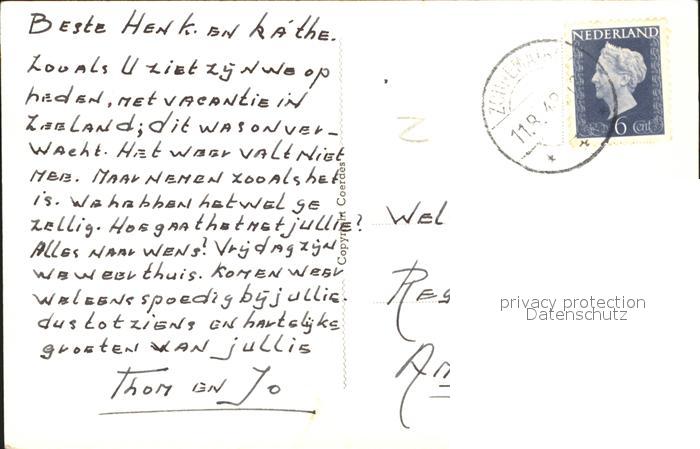 Beste Henk. en Käthe.
Zooals U ziet zijn we op
heden, met vacantie in
Zeeland; dit was onver-
wacht. Het weer valt niet
mee. Maar nemen zooals het
is. We hebben het wel ge
zellig. Hoe gaat het met jullie?
Alles naar wens? Vrijdag zijn
we weer thuis. Komen weer
wel eens spoedig bij jullie.
dus tot ziens en hartelijke
groeten van jullie
Thom en Jo
Copyright Coerdes
NEDERLAND
6 Cent
11.8.48
Wel
Res
Am
privacy protection
Datenschutz